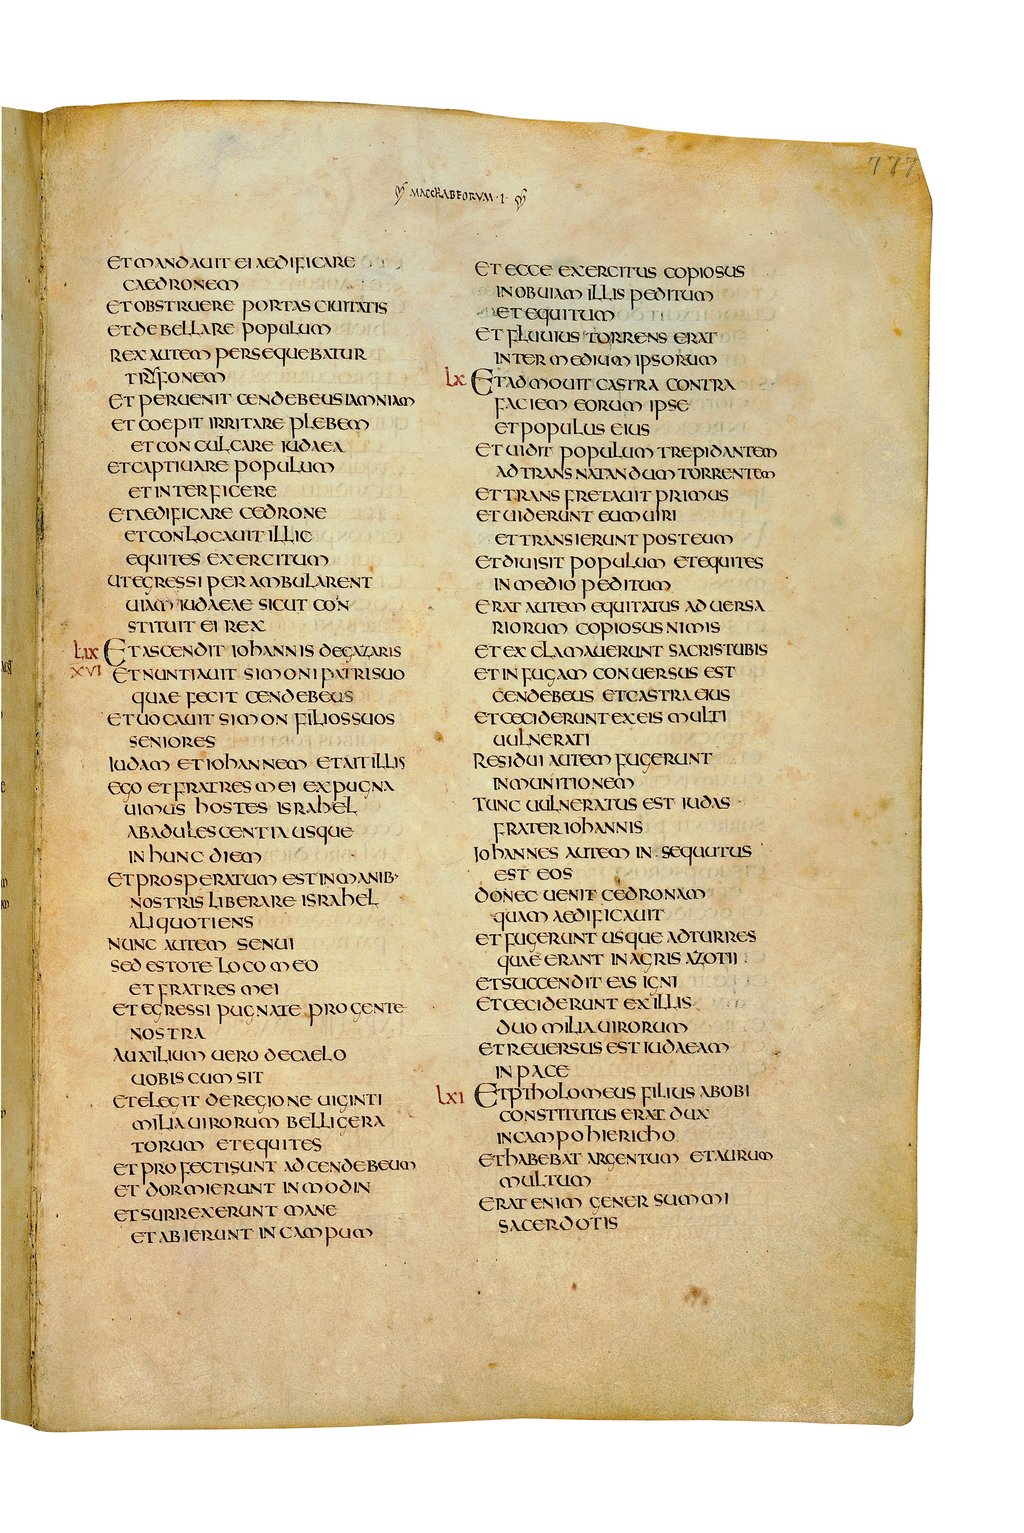 777
MACCHABEORUM · I ·
ET MANDAUIT EI AEDIFICARE
CAEDRONEM
ET OBSTRUERE PORTAS CIUITATIS
ET DEBELLARE POPULUM
REX AUTEM PERSEQUEBATUR
TRYFONEM
ET PERUENIT CENDEBEUS IAMNIAM
ET COEPIT IRRITARE PLEBEM
ET CONCULCARE IUDAEA
ET CAPTIUARE POPULUM
ET INTERFICERE
ET AEDIFICARE CEDRONE
ET CONLOCAUIT ILLIC
EQUITES EXERCITUM
UT EGRESSI PERAMBULARENT
UIAM IUDAEAE SICUT CON
STITUIT EI REX
LIX ET ASCENDIT IOHANNIS DE GAZARIS
XVI ET NUNTIAUIT SIMONI PATRI SUO
QUAE FECIT CENDEBEUS
ET UOCAUIT SIMON FILIOS SUOS
SENIORES
IUDAM ET IOHANNEM ET AIT ILLIS
EGO ET FRATRES MEI EXPUGNA
UIMUS HOSTES ISRAHEL
AB ADULESCENTIA USQUE
IN HUNC DIEM
ET PROSPERATUM EST IN MANIB·
NOSTRIS LIBERARE ISRAHEL
ALIQUOTIENS
NUNC AUTEM SENUI
SED ESTOTE LOCO MEO
ET FRATRES MEI
ET EGRESSI PUGNATE PRO GENTE
NOSTRA
AUXILIUM UERO DE CAELO
UOBISCUM SIT
ET ELEGIT DE REGIONE UIGINTI
MILIA UIRORUM BELLIGERA
TORUM ET EQUITES
ET PROFECTI SUNT AD CENDEBEUM
ET DORMIERUNT IN MODIN
ET SURREXERUNT MANE
ET ABIERUNT IN CAMPUM
ET ECCE EXERCITUS COPIOSUS
IN OBUIAM ILLIS PEDITUM
ET EQUITUM
ET FLUUIUS TORRENS ERAT
INTER MEDIUM IPSORUM
LX ET ADMOUIT CASTRA CONTRA
FACIEM EORUM IPSE
ET POPULUS EIUS
ET UIDIT POPULUM TREPIDANTEM
AD TRANSNATANDUM TORRENTEM
ET TRANSFRETAUIT PRIMUS
ET UIDERUNT EUM UIRI
ET TRANSIERUNT POST EUM
ET DIUISIT POPULUM ET EQUITES
IN MEDIO PEDITUM
ERAT AUTEM EQUITATUS ADUERSA
RIORUM COPIOSUS NIMIS
ET EXCLAMAUERUNT SACRIS TUBIS
ET IN FUGAM CONUERSUS EST
CENDEBEUS ET CASTRA EIUS
ET CECIDERUNT EX EIS MULTI
UULNERATI
RESIDUI AUTEM FUGERUNT
IN MUNITIONEM
TUNC UULNERATUS EST IUDAS
FRATER IOHANNIS
IOHANNES AUTEM INSEQUUTUS
EST EOS
DONEC UENIT CEDRONAM
QUAM AEDIFICAUIT
ET FUGERUNT USQUE AD TURRES
QUAE ERANT IN AGRIS AZOTII
ET SUCCENDIT EAS IGNI
ET CECIDERUNT EX ILLIS
DUO MILIA UIRORUM
ET REUERSUS EST IUDAEAM
IN PACE
LXI ET PTHOLOMEUS FILIUS ABOBI
CONSTITUTUS ERAT DUX
IN CAMPO HIERICHO
ET HABEBAT ARGENTUM ET AURUM
MULTUM
ERAT ENIM GENER SUMMI
SACERDOTIS